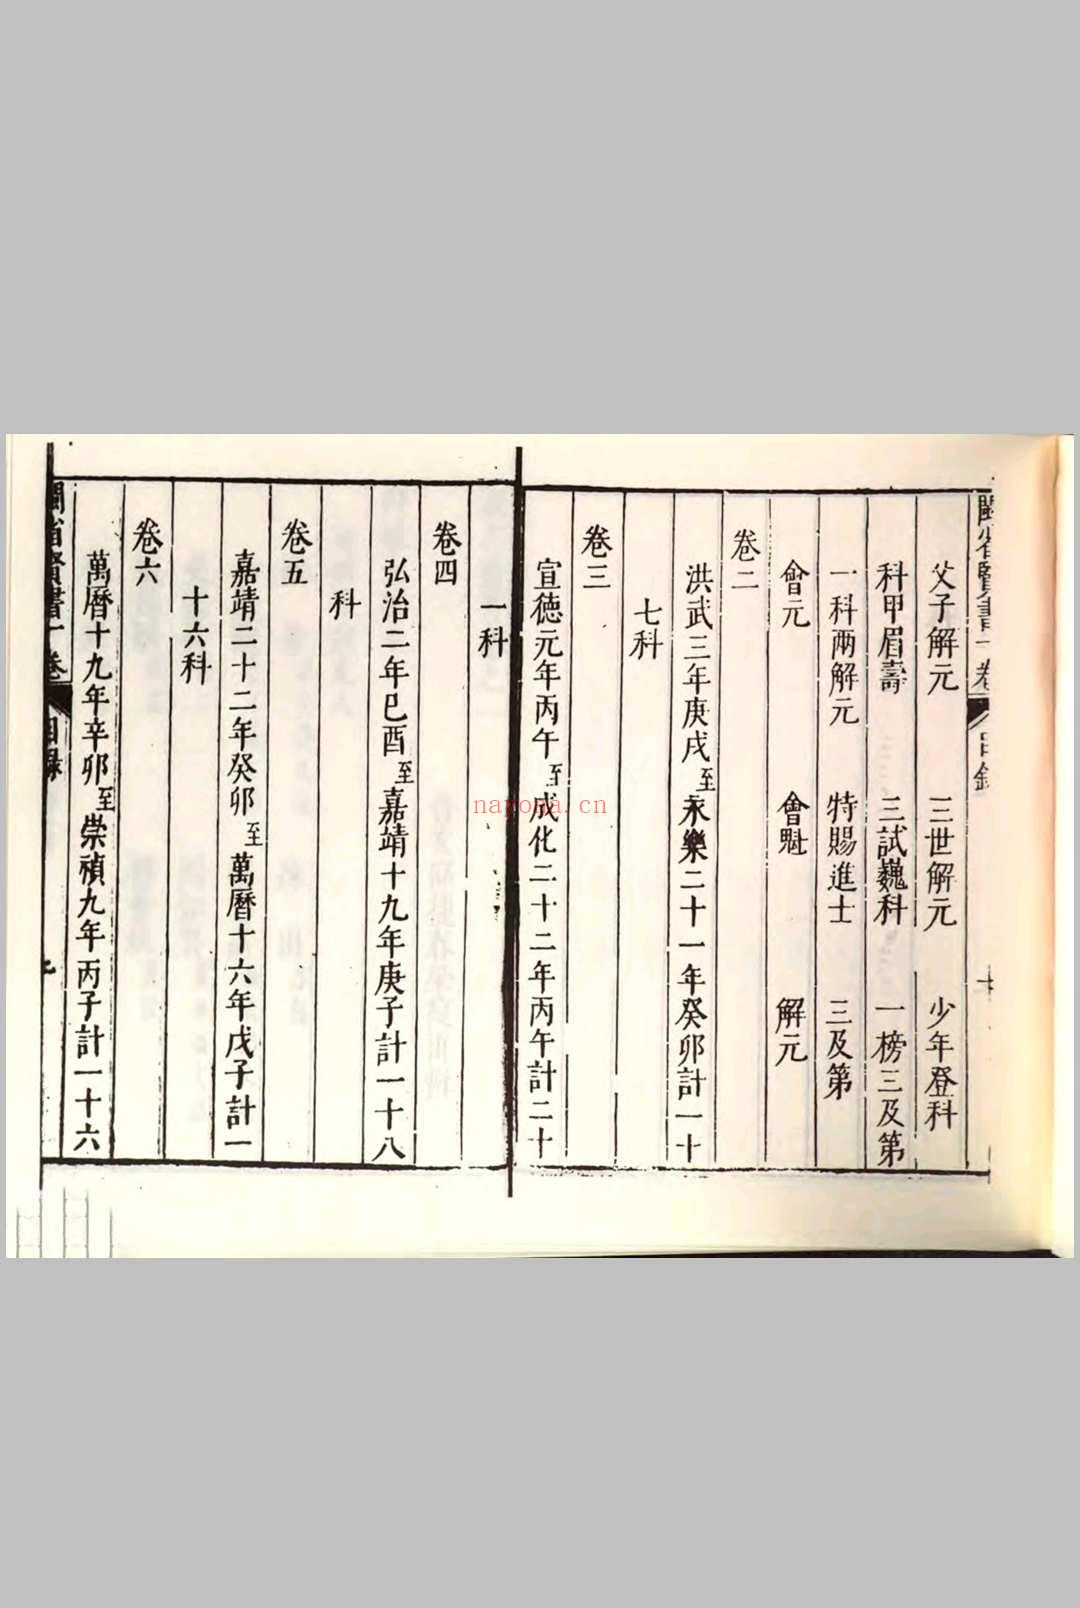 閩省賢書一卷 目錄
父子解元 三世解元 少年登科
科甲眉壽 三試巍科 一榜三及第
一科兩解元 特賜進士 三及第
會元 會魁 解元
卷二
洪武三年庚戌至永樂二十一年癸卯計一十
七科
卷三
宣徳元年丙午至成化二十二年丙午計二十
一科
卷四
弘治二年已酉至嘉靖十九年庚子計一十八
科
卷五
嘉靖二十二年癸卯至萬曆十六年戊子計一
十六科
卷六
萬曆十九年辛卯至崇禎九年丙子計一十六
閩省賢書一卷 目錄
nayona.cn